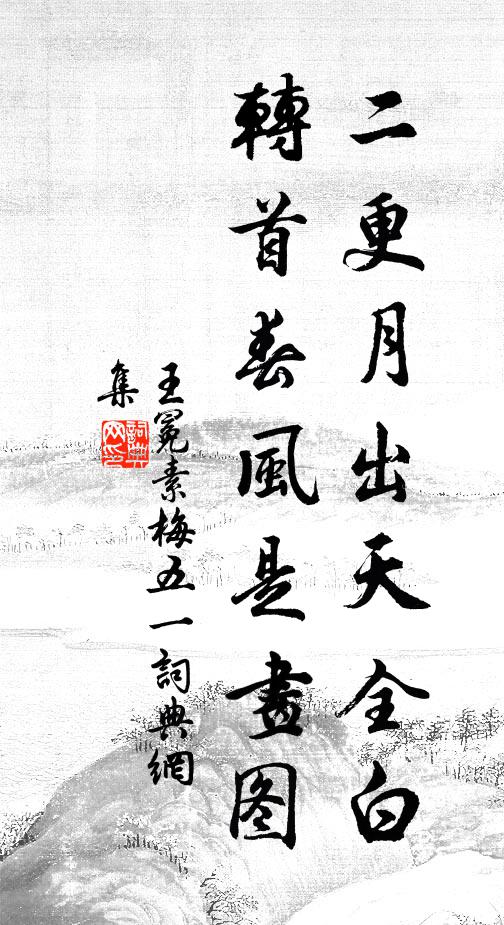 二更月出天全白
轉首春風是畫图
王冕素梅五一詞典網
集
詞典网